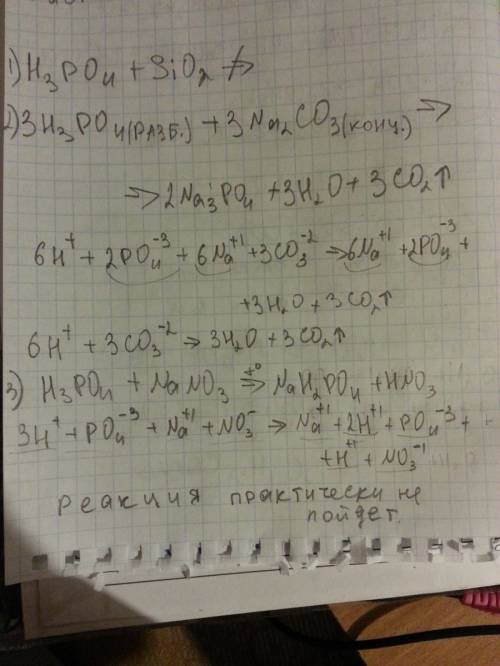 1) H₃PO₄ + SiO₂ ⇏
2) 3H₃PO₄(РАЗБ.) + 3Na₂CO₃(конц.) ⇒
⇒ 2Na₃PO₄ + 3H₂O + 3CO₂↑
6H⁺ + 2PO₄⁻³ + 6Na⁺¹ + 3CO₃⁻² ⇒ 6Na⁺¹ + 2PO₄⁻³ +
+ 3H₂O + 3CO₂↑
6H⁺ + 3CO₃⁻² ⇒ 3H₂O + 3CO₂↑
3) H₃PO₄ + NaNO₃ ⇒ᵗ° NaH₂PO₄ + HNO₃
3H⁺ + PO₄⁻³ + Na⁺¹ + NO₃⁻ ⇒ Na⁺¹ + 2H⁺¹ + PO₄⁻³ +
+ H⁺¹ + NO₃⁻¹
реакция практически не
пойдет.